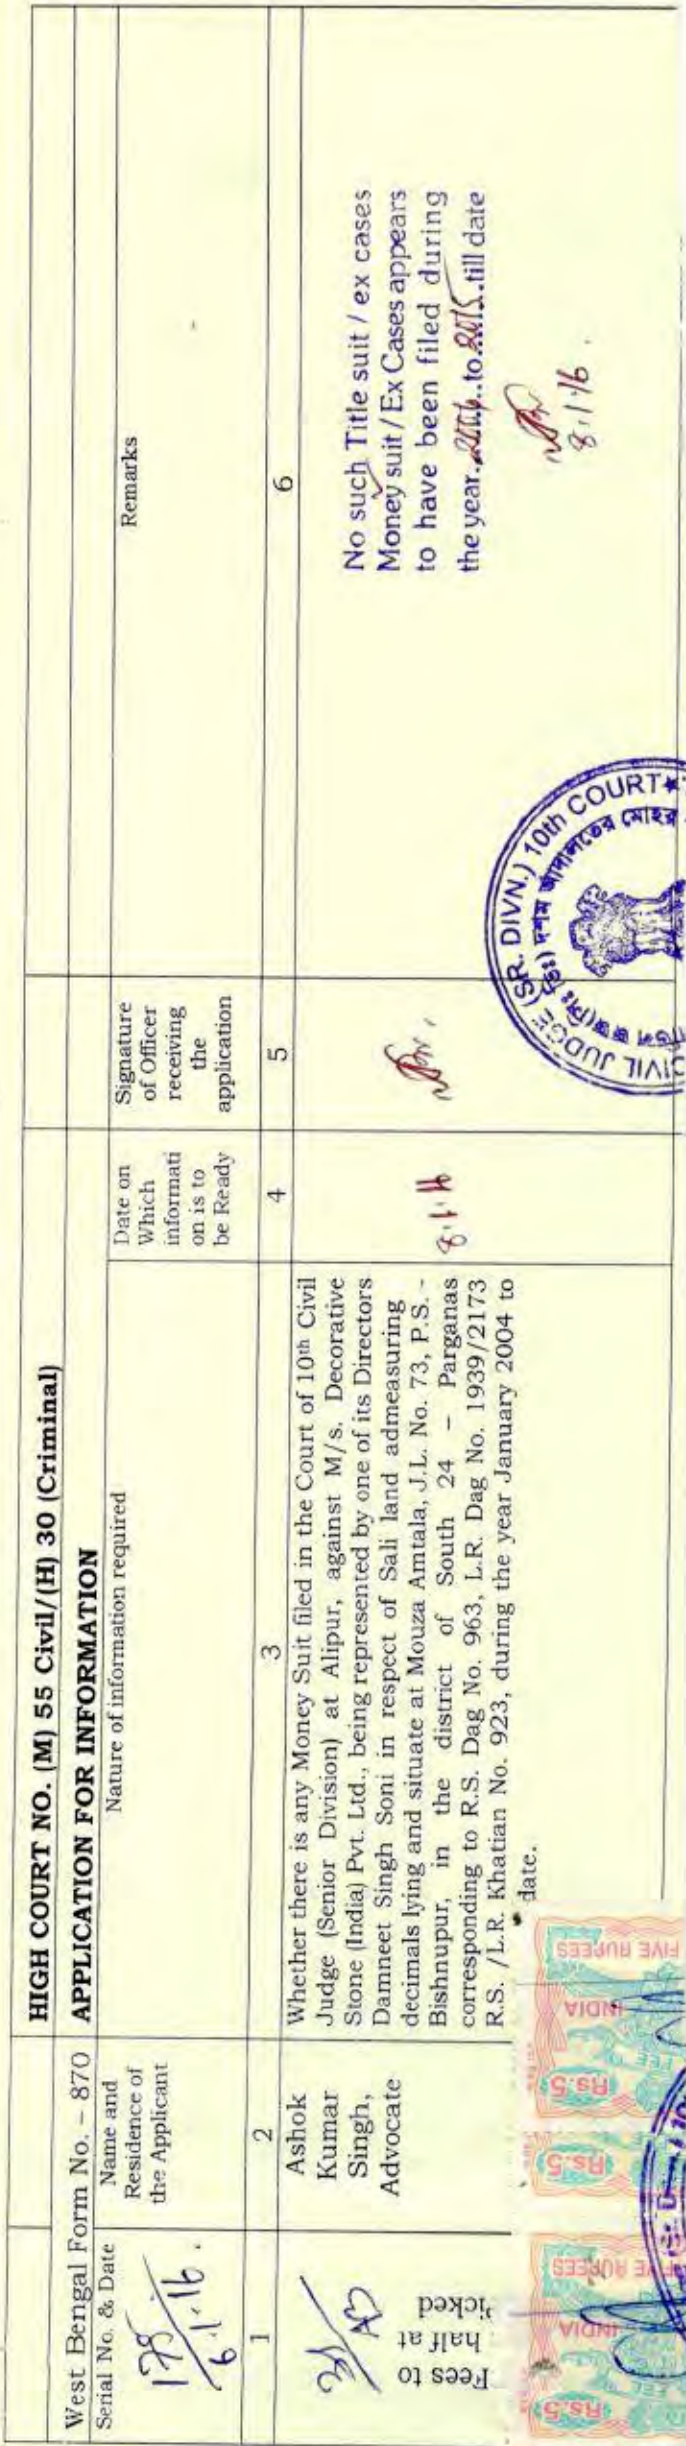 HIGH COURT NO. (M) 55 Civil/(H) 30 (Criminal)
West Bengal Form No. – 870
APPLICATION FOR INFORMATION
Serial No. & Date
Name and
Residence of
the Applicant
Nature of information required
Date on
Which
informati
on is to
be Ready
Signature
of Officer
receiving
the
application
Remarks
1
2
3
4
5
6
178
6.1.16.
Fees to
half at
Picked
Ashok
Kumar
Singh,
Advocate
Whether there is any Money Suit filed in the Court of 10th Civil
Judge (Senior Division) at Alipur, against M/s. Decorative
Stone (India) Pvt. Ltd., being represented by one of its Directors
Damneet Singh Soni in respect of Sali land admeasuring
decimals lying and situate at Mouza Amtala, J.L. No. 73, P.S. -
Bishnupur, in the district of South 24 – Parganas
corresponding to R.S. Dag No. 963, L.R. Dag No. 1939/2173
R.S. /L.R. Khatian No. 923, during the year January 2004 to
date.
8.1.16
No such Title suit / ex cases
Money suit / Ex Cases appears
to have been filed during
the year to 2015 till date
8.1.16.
CIVIL JUDGE (SR. DIVN.) 10th COURT
দশম আদালতের মোহর
Rs.5
INDIA
FIVE RUPEES
Rs.5
Rs.5
INDIA
FIVE RUPEES